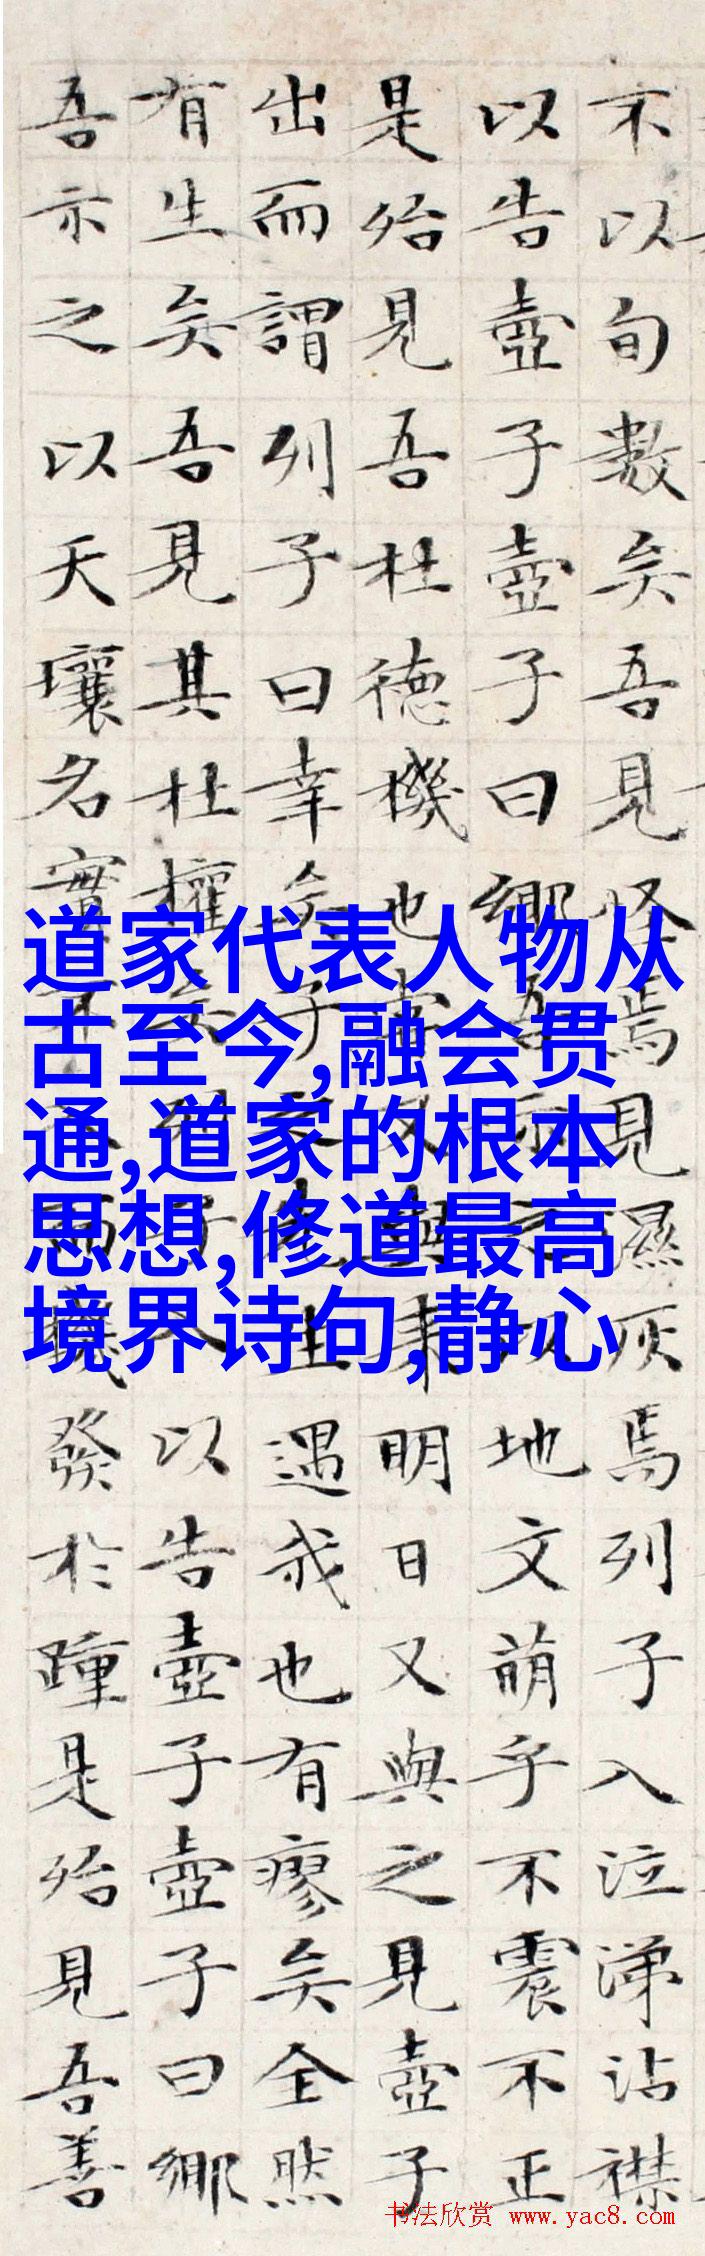 不以旬數矣吾見怪焉見濕灰焉列子入泣涕沾襟
以告壺子壺子曰鄉吾示之以地文萌乎不震不正
是殆見吾杜德機也嘗又與來明日又與之見壺子
出而謂列子曰幸矣子之先生遇我也有瘳矣全然
有生矣吾見其杜權矣列子入以告壺子壺子曰鄉
吾示之以天壤名實不入而機發於踵是殆見吾善
道家代表人物从
古至今,融会贯
通,道家的根本
思想,修道最高
境界诗句,静心
书法欣赏 www.yac8.com